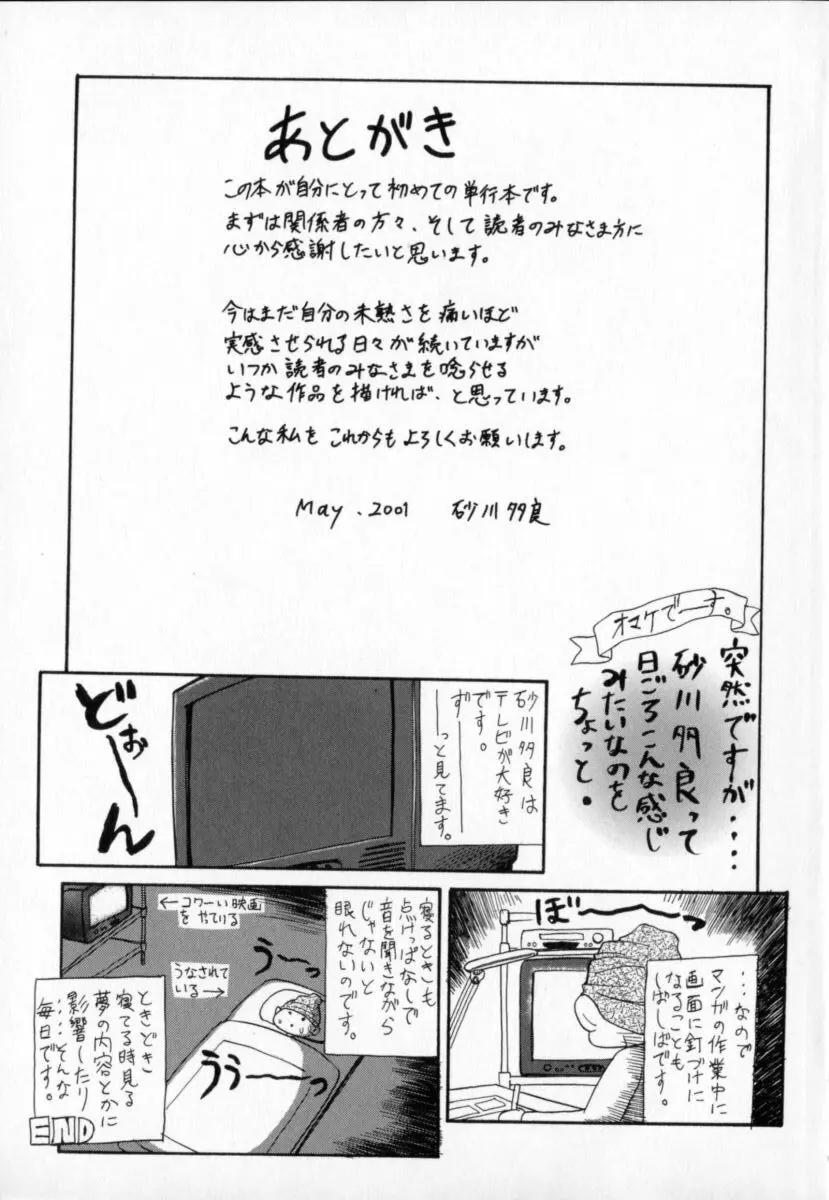 あとがき
この本が自分にとって初めての単行本です。
まずは関係者の方々、そして読者のみなさま方に
心から感謝したいと思います。
今はまだ自分の未熟さを痛いほど
実感させられる日々が続いていますが
いつか読者のみなさまを唸らせる
ような作品を描ければ、と思っています。
こんな私をこれからもよろしくお願いします。
May.2001 砂川多良
オマケでーす。
突然ですが‥‥
砂川多良って
日ごろこんな感じ
みたいなのを
ちょっと。
砂川多良は
テレビが大好き
です。
ず――
――っと見てます。
どぉ〜ん
…なので
マンガの作業中に
画面に釘づけに
なることも
しばしばです。
ぼ〜〜っ
寝るときも
点けっぱなしで
音を聞きながら
じゃないと
眠れないのです。
←コワーい映画
をやている
うなされて
いる→
う〜っ
うぅ〜っ
ときどき
寝てる時見る
夢の内容とかに
影響したり
‥‥そんな
毎日です。
END